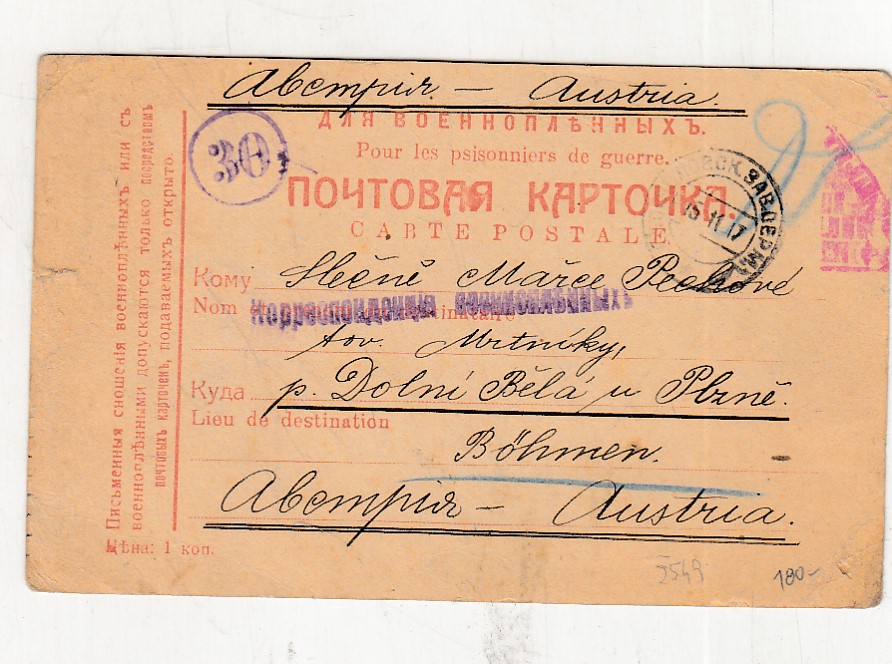 Австрія. — Austria.
ДЛЯ ВОЕННОПЛѢННЫХЪ.
Pour les psisonniers de guerre.
ПОЧТОВАЯ КАРТОЧКА.
CARTE POSTALE
30
ЗАВ. ПЕРМ.
15 11 17
Кому Slečně Mařce Pechové
Nom et destinataire
Корреспонденція военноплѣнныхъ
tov. Mrtníky,
Куда p. Dolní Bělá u Plzně.
Lieu de destination
Böhmen.
Австрія — Austria.
Письменныя сношенія военноплѣнныхъ или съ
военноплѣнными допускаются только посредствомъ
почтовыхъ карточекъ, подаваемыхъ открыто.
Цѣна: 1 коп.
2549
180-